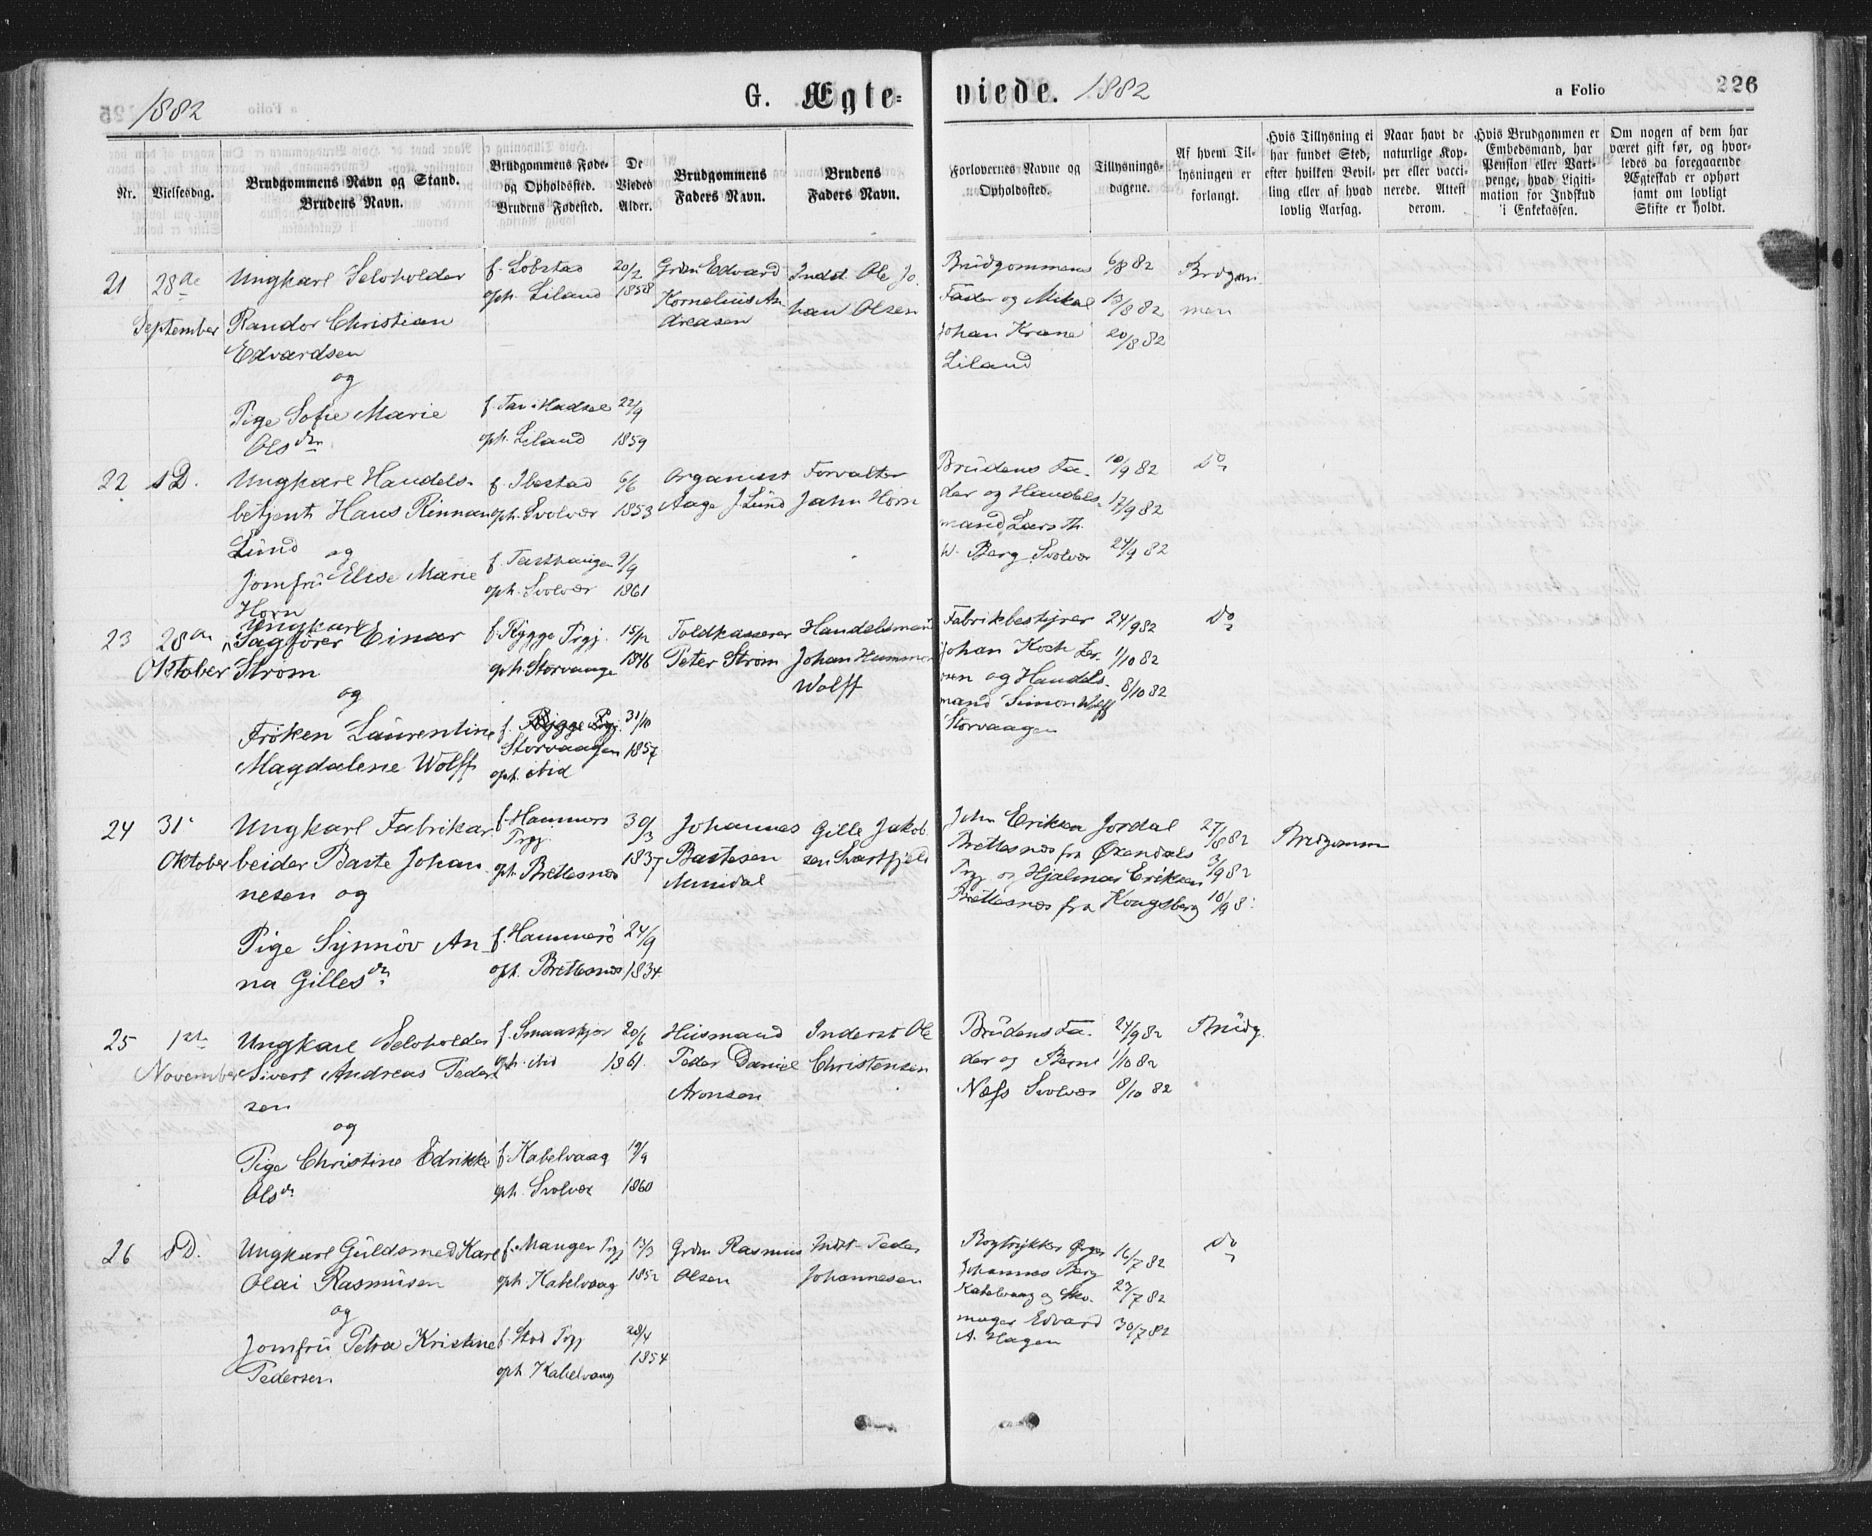 1882
G. Ægteviede. 1882
a Folio 226
Nr.
Vielsesdag.
Brudgommens Navn og Stand.
Brudens Navn.
Brudgommens Føde-
og Opholdssted.
Brudens Fødested.
De
Viedes
Alder.
Brudgommens
Faders Navn.
Brudens
Faders Navn.
Forlovernes Navne og
Opholdssted.
Tillysnings-
dagene.
Af hvem Til-
lysningen er
forlangt.
Hvis Tillysning ei
har fundet Sted,
efter hvilken Bevil-
ling eller af hvad
lovlig Aarsag.
Naar havt de
naturlige Kop-
per eller vacci-
nerede. Attest
derom.
Hvis Brudgommen er
Embedsmand, har
Pension eller Vart-
penge, hvad Legiti-
mation for Indskud
i Enkekassen.
Om nogen af dem har
været gift før, og hvor-
ledes da foregaaende
Ægteskab er ophørt
samt om lovligt
Skifte er holdt.
21
28de
September
Ungkarl Selvholder
Randor Christian
Edvardsen
og
Pige Sofie Marie
Olsdtr
f. Løbstad
oph. Liland
20/2
1858
f. i Hadsel
oph. Liland
22/9
1859
Grdm Edvard
Kornelius An-
dreasen
Indst. Ole Jo-
han Olsen
Brudgommens
Fader og Mikal
Johan Krane
Liland
6/8 82
13/8 82
20/8 82
Brdgom
men
22
s D.
Ungkarl Handels-
betjent Hans Rinnan
Lund og
Jomfru Elise Marie
Horn
f. Ibestad
oph. Svolvær
6/6
1853
f.
oph. Svolvær
9/9
1861
Organist
Aage J Lund
Forvalter
Jahn Horn
Brudens Fa-
der og Handels-
mand Lars Th.
W. Berg Svolvær
10/9 82
17/9 82
24/9 82
Do
23
28de
Oktober
Ungkarl
Sagfører Einar
Strøm
og
Frøken Laurentine
Magdalene Wolff
f. Rygge Prgj.
oph. Storvaagen
15/12
1846
f. Rygge Prgj.
Storvaagen
oph. ibid
31/10
1857
Toldkasserer
Peter Strøm
Handelsmand
Johan Hammer
Wolff
Fabrikbestyrer
Johan Koch
og Handels-
mand Simon Wolff
Storvaagen
24/9 82
1/10 82
8/10 82
Do
24
31.
Oktober
Ungkarl Fabrikar
beider Baste Johan
nesen og
Pige Synnøv An-
na Gillesdtr
f. Hammers
Prgj.
oph. Brettesnæs
30/3
1837
f. Hammerø
oph. Brettesnæs
24/9
1834
Johannes
Bastesen
Gille Jakob
sen Svartfjeld
John Eriksen Jordal
Brettesnæs fra Øxendals
Prgj og Hjalmar Eriksen
Brettesnæs fra Kongsberg
27/8 82
3/9 82
10/9 8
Brudgomm
25
1ste
November
Ungkarl Selvholder
Sivert Andreas Peder
sen
og
Pige Christine Edrikke
Olsdr
f. Smaaskjær
oph. ibid
20/6
1861
f. Kabelvaag
oph. Svolvær
19/9
1860
Husmand
Peder Daniel
Aronsen
Inderst Ole
Christensen
Brudens Fa-
der og Bernt
Næss Svolvær
24/9 82
1/10 82
8/10 82
Brudg.
26
s D.
Ungkarl Guldsmed Karl
Olai Rasmusen
og
Jomfru Petra Kristine
Pedersen
f. Manger Prgj
oph. Kabelvaag
13/3
1852
f. Stod Prgj
oph. Kabelvaag
28/4
1854
Grdm Rasmus
Olsen
Indst. Peder
Johannesen
Bogtrykker
Johannes Berg
Kabelvaag og Sko-
mager Edvard
A. Hagen
16/7 82
23/7 82
30/7 82
Do